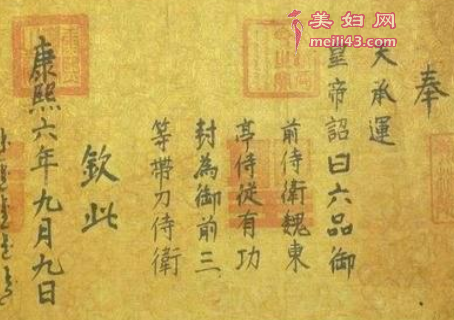 美妇网
meili43.com
奉
天承運
皇帝詔曰六品御
前侍衛魏東
亭侍從有功
封為御前三
等帶刀侍衛
欽此
康熙六年九月九日